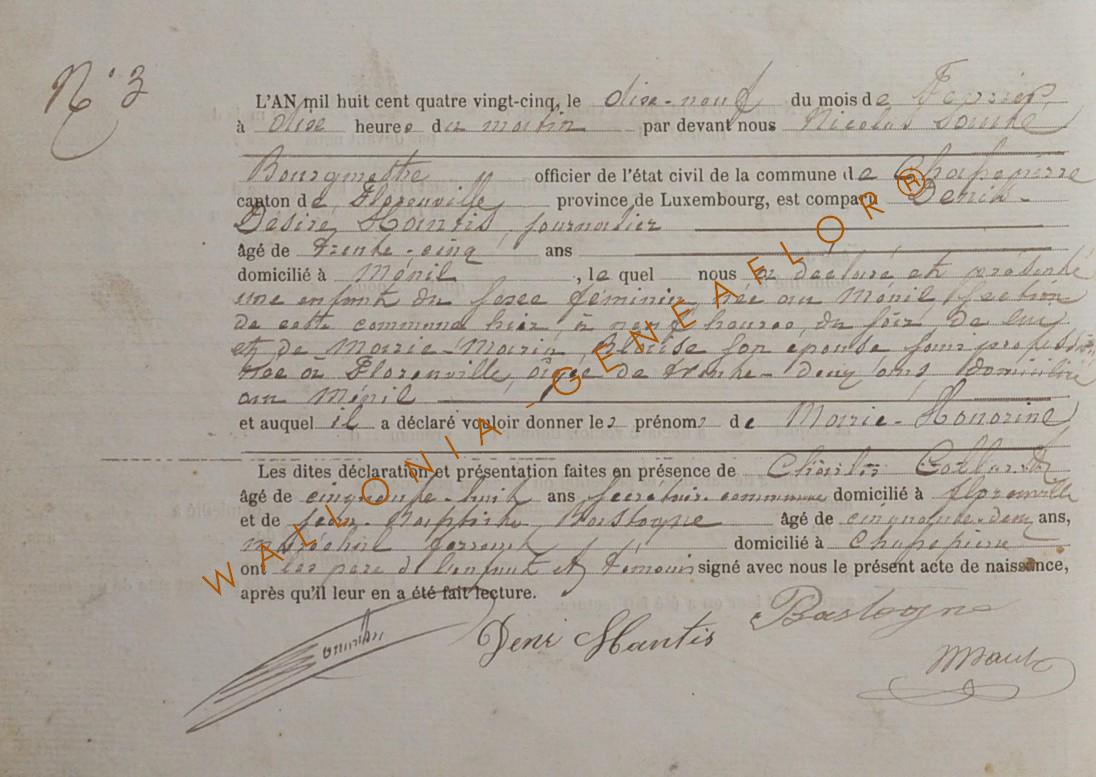 N° 3
L'AN mil huit cent quatre vingt-cinq, le dise-neuf du mois de Fevrier
à dise heures du matin par devant nous Nicolas
Bourgmestre officier de l'état civil de la commune de Chapepierre
canton de Florenville province de Luxembourg, est comparu Denis-
Désiré Hantis, journalier
âgé de trente-cinq ans
domicilié à Ménil, le quel nous a déclaré et présenté
une enfant du sexe féminin, née au Ménil, section
de cette commune hier, à neuf heures, du soir de lui
et de Marie-Marin, Blaise son epouse sans profession
née à Florenville, âgée de trente-deux ans domiciliée
au Ménil
et auquel il a déclaré vouloir donner les prénoms de Marie-Honorine
Les dites déclaration et présentation faites en présence de Charles
âgé de cinquante-huit ans secrétaire communal domicilié à Florenville
et de Jean-Baptiste Bastogne âgé de cinquante-deux ans,
maréchal ferrant domicilié à Chapepierre
ont les père de l'enfant et témoins signé avec nous le présent acte de naissance,
après qu'il leur en a été fait lecture.
Deni Hantis Bastogne
WALLONIA-GENEAELOR®